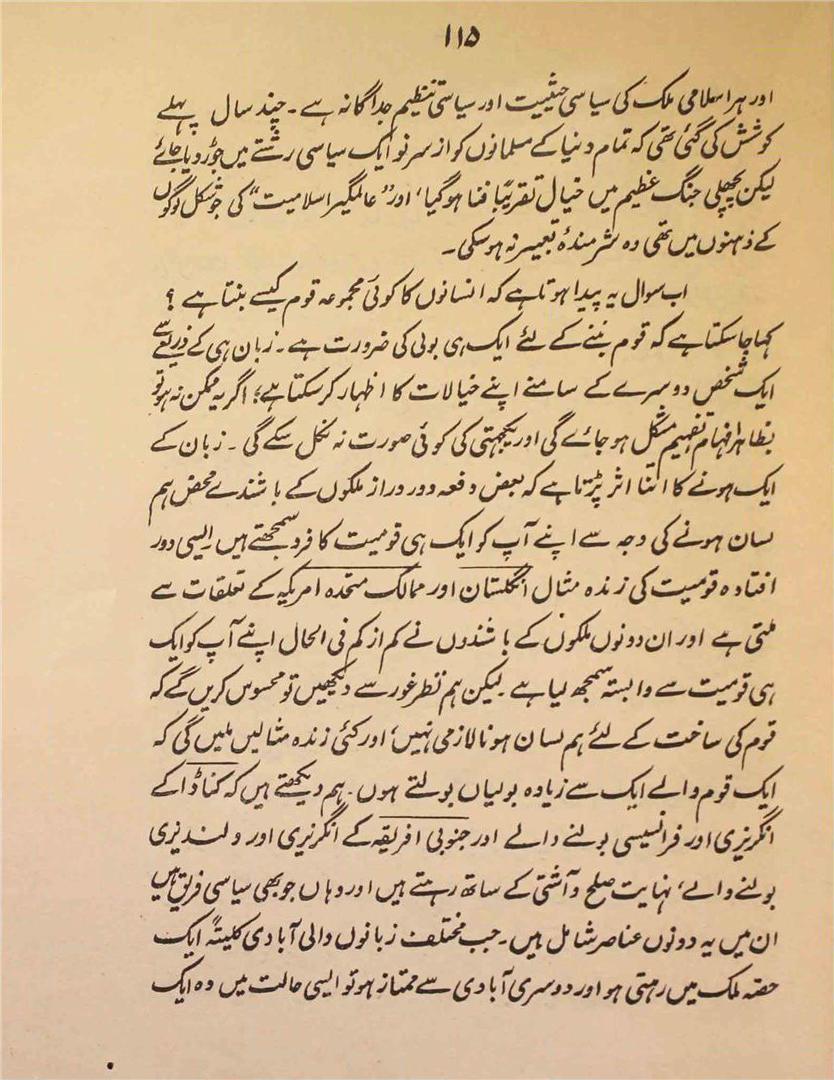 ۱۱۵
اور ہر اسلامی ملک کی سیاسی حیثیت اور سیاستی تنظیم جداگانہ ہے۔ چند سال پہلے
کوشش کی گئی تھی کہ تمام دنیا کے مسلمانوں کو ازسرنو ایک سیاسی رشتے میں جوڑ دیا جائے
لیکن پچھلی جنگ عظیم میں خیال تقریباً فنا ہو گیا، اور "عالمگیر اسلامیت" کی جو شکل لوگوں
کے ذہنوں میں تھی وہ شرمندۂ تعبیر نہ ہو سکی۔
اب سوال یہ پیدا ہوتا ہے کہ انسانوں کا کوئی مجموعہ قوم کیسے بنتا ہے ؟
کہا جا سکتا ہے کہ قوم بننے کے لئے ایک ہی بولی کی ضرورت ہے۔ زبان ہی کے ذریعے سے
ایک شخص دوسرے کے سامنے اپنے خیالات کا اظہار کر سکتا ہے؛ اگر یہ ممکن نہ ہو تو
بظاہر افہام تفہیم مشکل ہو جائے گی اور یکجہتی کی کوئی صورت نہ نکل سکے گی۔ زبان کے
ایک ہونے کا اتنا اثر پڑتا ہے کہ بعض دفعہ دور دراز ملکوں کے باشندے محض ہم
لسان ہونے کی وجہ سے اپنے آپ کو ایک ہی قومیت کا فرد سمجھتے ہیں۔ ایسی دور
افتادہ قومیت کی زندہ مثال انگلستان اور ممالک متحدہ امریکہ کے تعلقات سے
ملتی ہے اور ان دونوں ملکوں کے باشندوں نے کم از کم فی الحال اپنے آپ کو ایک
ہی قومیت سے وابستہ سمجھ لیا ہے۔ لیکن ہم نظر غور سے دیکھیں تو محسوس کریں گے کہ
قوم کی ساخت کے لئے ہم لسان ہونا لازمی نہیں؛ اور کئی زندہ مثالیں ملیں گی کہ
ایک قوم والے ایک سے زیادہ بولیاں بولتے ہوں۔ ہم دیکھتے ہیں کہ کناڈا کے
انگریزی اور فرانسیسی بولنے والے اور جنوبی افریقہ کے انگریزی اور ولندیزی
بولنے والے، نہایت صلح و آشتی کے ساتھ رہتے ہیں اور وہاں جو بھی سیاسی فریق ہیں
ان میں یہ دونوں عناصر شامل ہیں۔ جب مختلف زبانوں والی آبادی کلیتہً ایک
حصّہ ملک میں رہتی ہو اور دوسری آبادی سے ممتاز ہو تو ایسی حالت میں وہ ایک